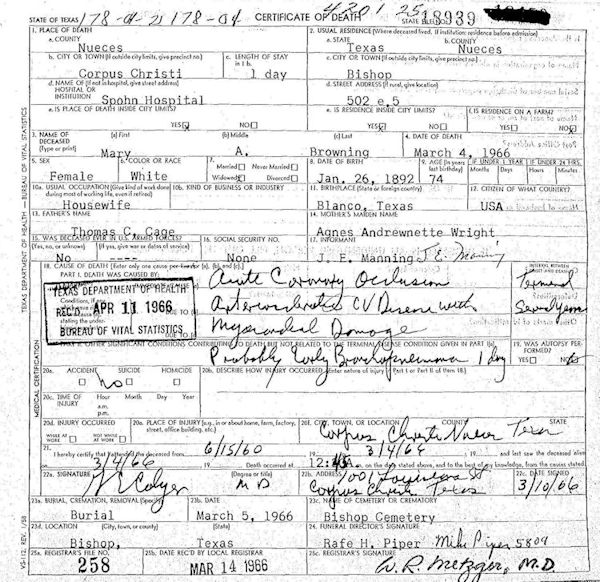 STATE OF TEXAS
178-01-2
178-04
CERTIFICATE OF DEATH
4201
25
STATE FILE NO.
18939
1. PLACE OF DEATH
a. COUNTY
Nueces
2. USUAL RESIDENCE (Where deceased lived. If institution: residence before admission)
a. STATE
Texas
b. COUNTY
Nueces
b. CITY OR TOWN (If outside city limits, give precinct no.)
Corpus Christi
c. LENGTH OF STAY in 1 b.
1 day
c. CITY OR TOWN (If outside city limits, give precinct no.)
Bishop
d. NAME OF (If not in hospital, give street address) HOSPITAL OR INSTITUTION
Spohn Hospital
d. STREET ADDRESS (If rural, give location)
502 e.5
e. IS PLACE OF DEATH INSIDE CITY LIMITS?
YES NO
e. IS RESIDENCE INSIDE CITY LIMITS?
YES NO
f. IS RESIDENCE ON A FARM?
YES NO
3. NAME OF DECEASED (Type or print)
(a) First
Mary
(b) Middle
A.
(c) Last
Browning
4. DATE OF DEATH
March 4, 1966
5. SEX
Female
6. COLOR OR RACE
White
7.
Married Never Married
Widowed Divorced
8. DATE OF BIRTH
Jan. 26, 1892
9. AGE (In years last birthday)
74
IF UNDER 1 YEAR
Months Days
IF UNDER 24 HRS.
Hours Min.
10a. USUAL OCCUPATION (Give kind of work done during most of working life, even if retired)
Housewife
10b. KIND OF BUSINESS OR INDUSTRY
11. BIRTHPLACE (State or foreign country)
Blanco, Texas
12. CITIZEN OF WHAT COUNTRY?
USA
13. FATHER'S NAME
Thomas C. Cage
14. MOTHER'S MAIDEN NAME
Agnes Andrewnette Wright
15. WAS DECEASED EVER IN U.S. ARMED FORCES?
(Yes, no, or unknown) (If yes, give war or dates of service)
No ----
16. SOCIAL SECURITY NO.
None
17. INFORMANT
J. E. Manning J. E. Manning
18. CAUSE OF DEATH [Enter only one cause per line for (a), (b), and (c).]
PART I. DEATH WAS CAUSED BY:
INTERVAL BETWEEN ONSET AND DEATH
Acute Coronary Occlusion
Terminal
Arteriosclerotic CV Disease with
Several years
Myocardial Damage
TEXAS DEPARTMENT OF HEALTH
REC'D APR 11 1966
BUREAU OF VITAL STATISTICS
PART II. OTHER SIGNIFICANT CONDITIONS CONTRIBUTING TO DEATH BUT NOT RELATED TO THE TERMINAL DISEASE CONDITION GIVEN IN PART I(a).
Probably Early Bronchopneumonia 1 day
19. WAS AUTOPSY PERFORMED?
YES NO
MEDICAL CERTIFICATION
20a. ACCIDENT SUICIDE HOMICIDE
no
20b. DESCRIBE HOW INJURY OCCURRED. (Enter nature of injury in Part I or Part II of item 18).
20c. TIME OF INJURY
Hour Month Day Year
a.m.
p.m.
20d. INJURY OCCURRED
WHILE AT WORK NOT WHILE AT WORK
20e. PLACE OF INJURY (e.g., in or about home, farm, factory, street, office building, etc.)
20f. CITY, TOWN, OR LOCATION COUNTY STATE
Corpus Christi Nueces Texas
21. I hereby certify that I attended the deceased from 6/15/60 19 3/4/66 19 and last saw the deceased alive
3/4/66 19 Death occurred at 12: on the date stated above, and to the best of my knowledge, from the causes stated.
22a. SIGNATURE (Degree or title)
M D
22b. ADDRESS
Corpus Christi Texas
22c. DATE SIGNED
3/10/66
23a. BURIAL, CREMATION, REMOVAL (Specify)
Burial
23b. DATE
March 5, 1966
23c. NAME OF CEMETERY OR CREMATORY
Bishop Cemetery
23d. LOCATION (City, town, or county) (State)
Bishop, Texas
24. FUNERAL DIRECTOR'S SIGNATURE
Rafe H. Piper Mike Piper 5809
25a. REGISTRAR'S FILE NO.
258
25b. DATE REC'D BY LOCAL REGISTRAR
MAR 14 1966
25c. REGISTRAR'S SIGNATURE
W. R. Metzger, M.D.
TEXAS DEPARTMENT OF HEALTH — BUREAU OF VITAL STATISTICS
VS-112, REV. 1/58